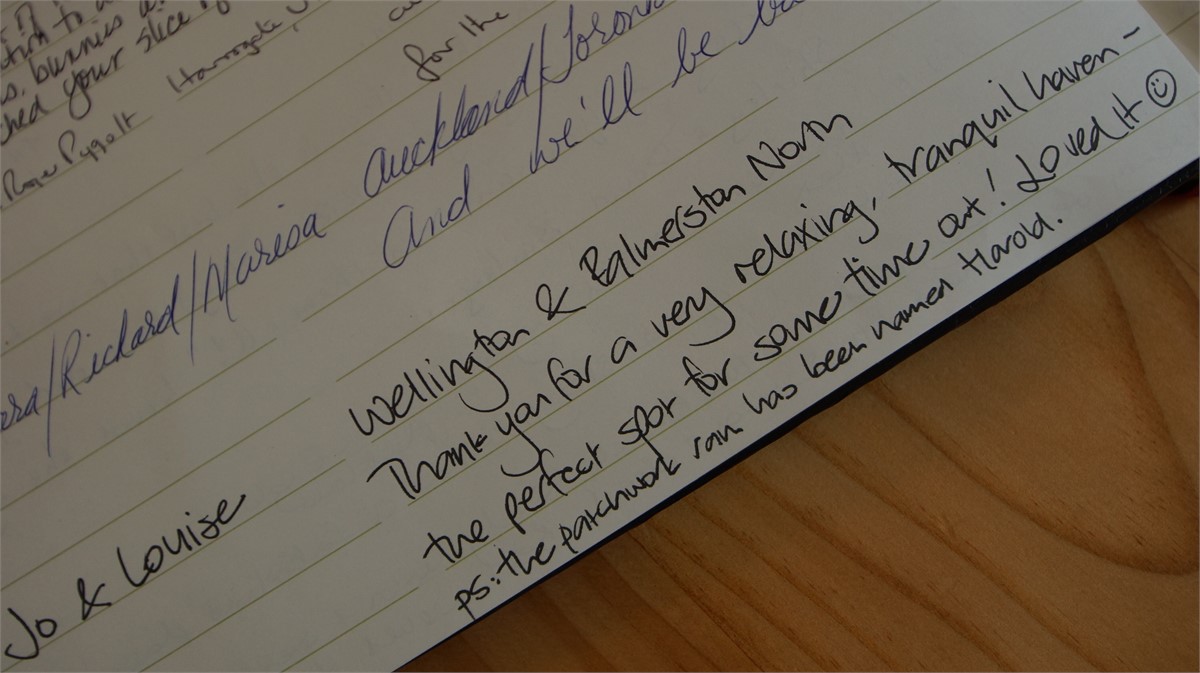 your slice
Harrogate,
for the
/Richard/Marisa Auckland/Toronto
And we'll be
Jo & Louise
Wellington & Palmerston North
Thank you for a very relaxing, tranquil haven -
the perfect spot for some time out! Loved it ☺
ps: the patchwork ram has been named Harold.